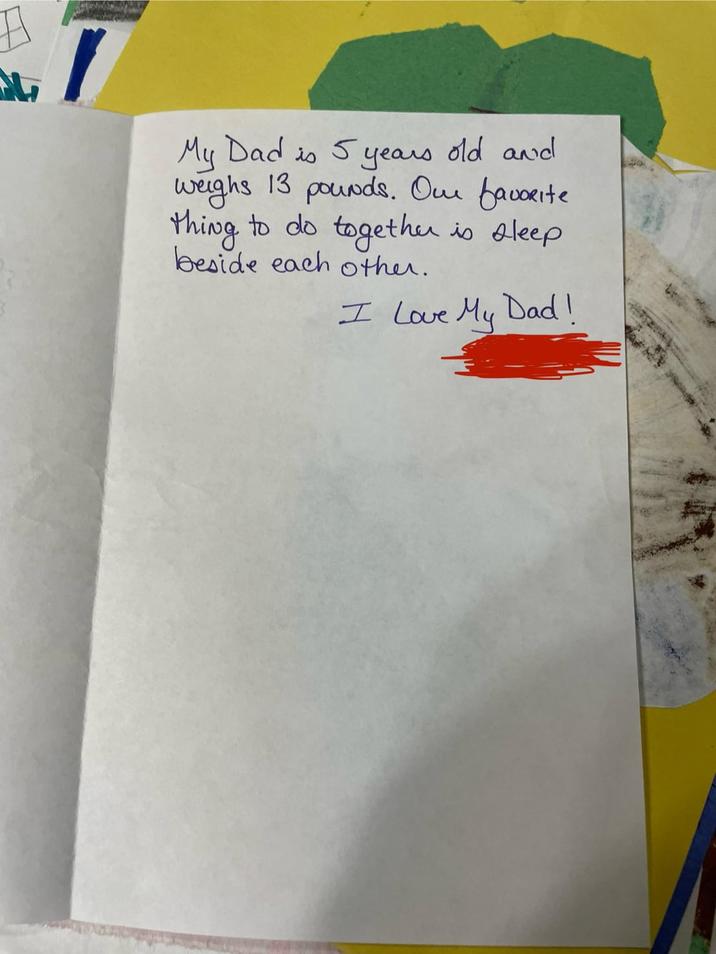 My Dad is 5 years old and
weighs 13 pounds. Our favorite
thing to do together is sleep
beside each other.
I Love My Dad!